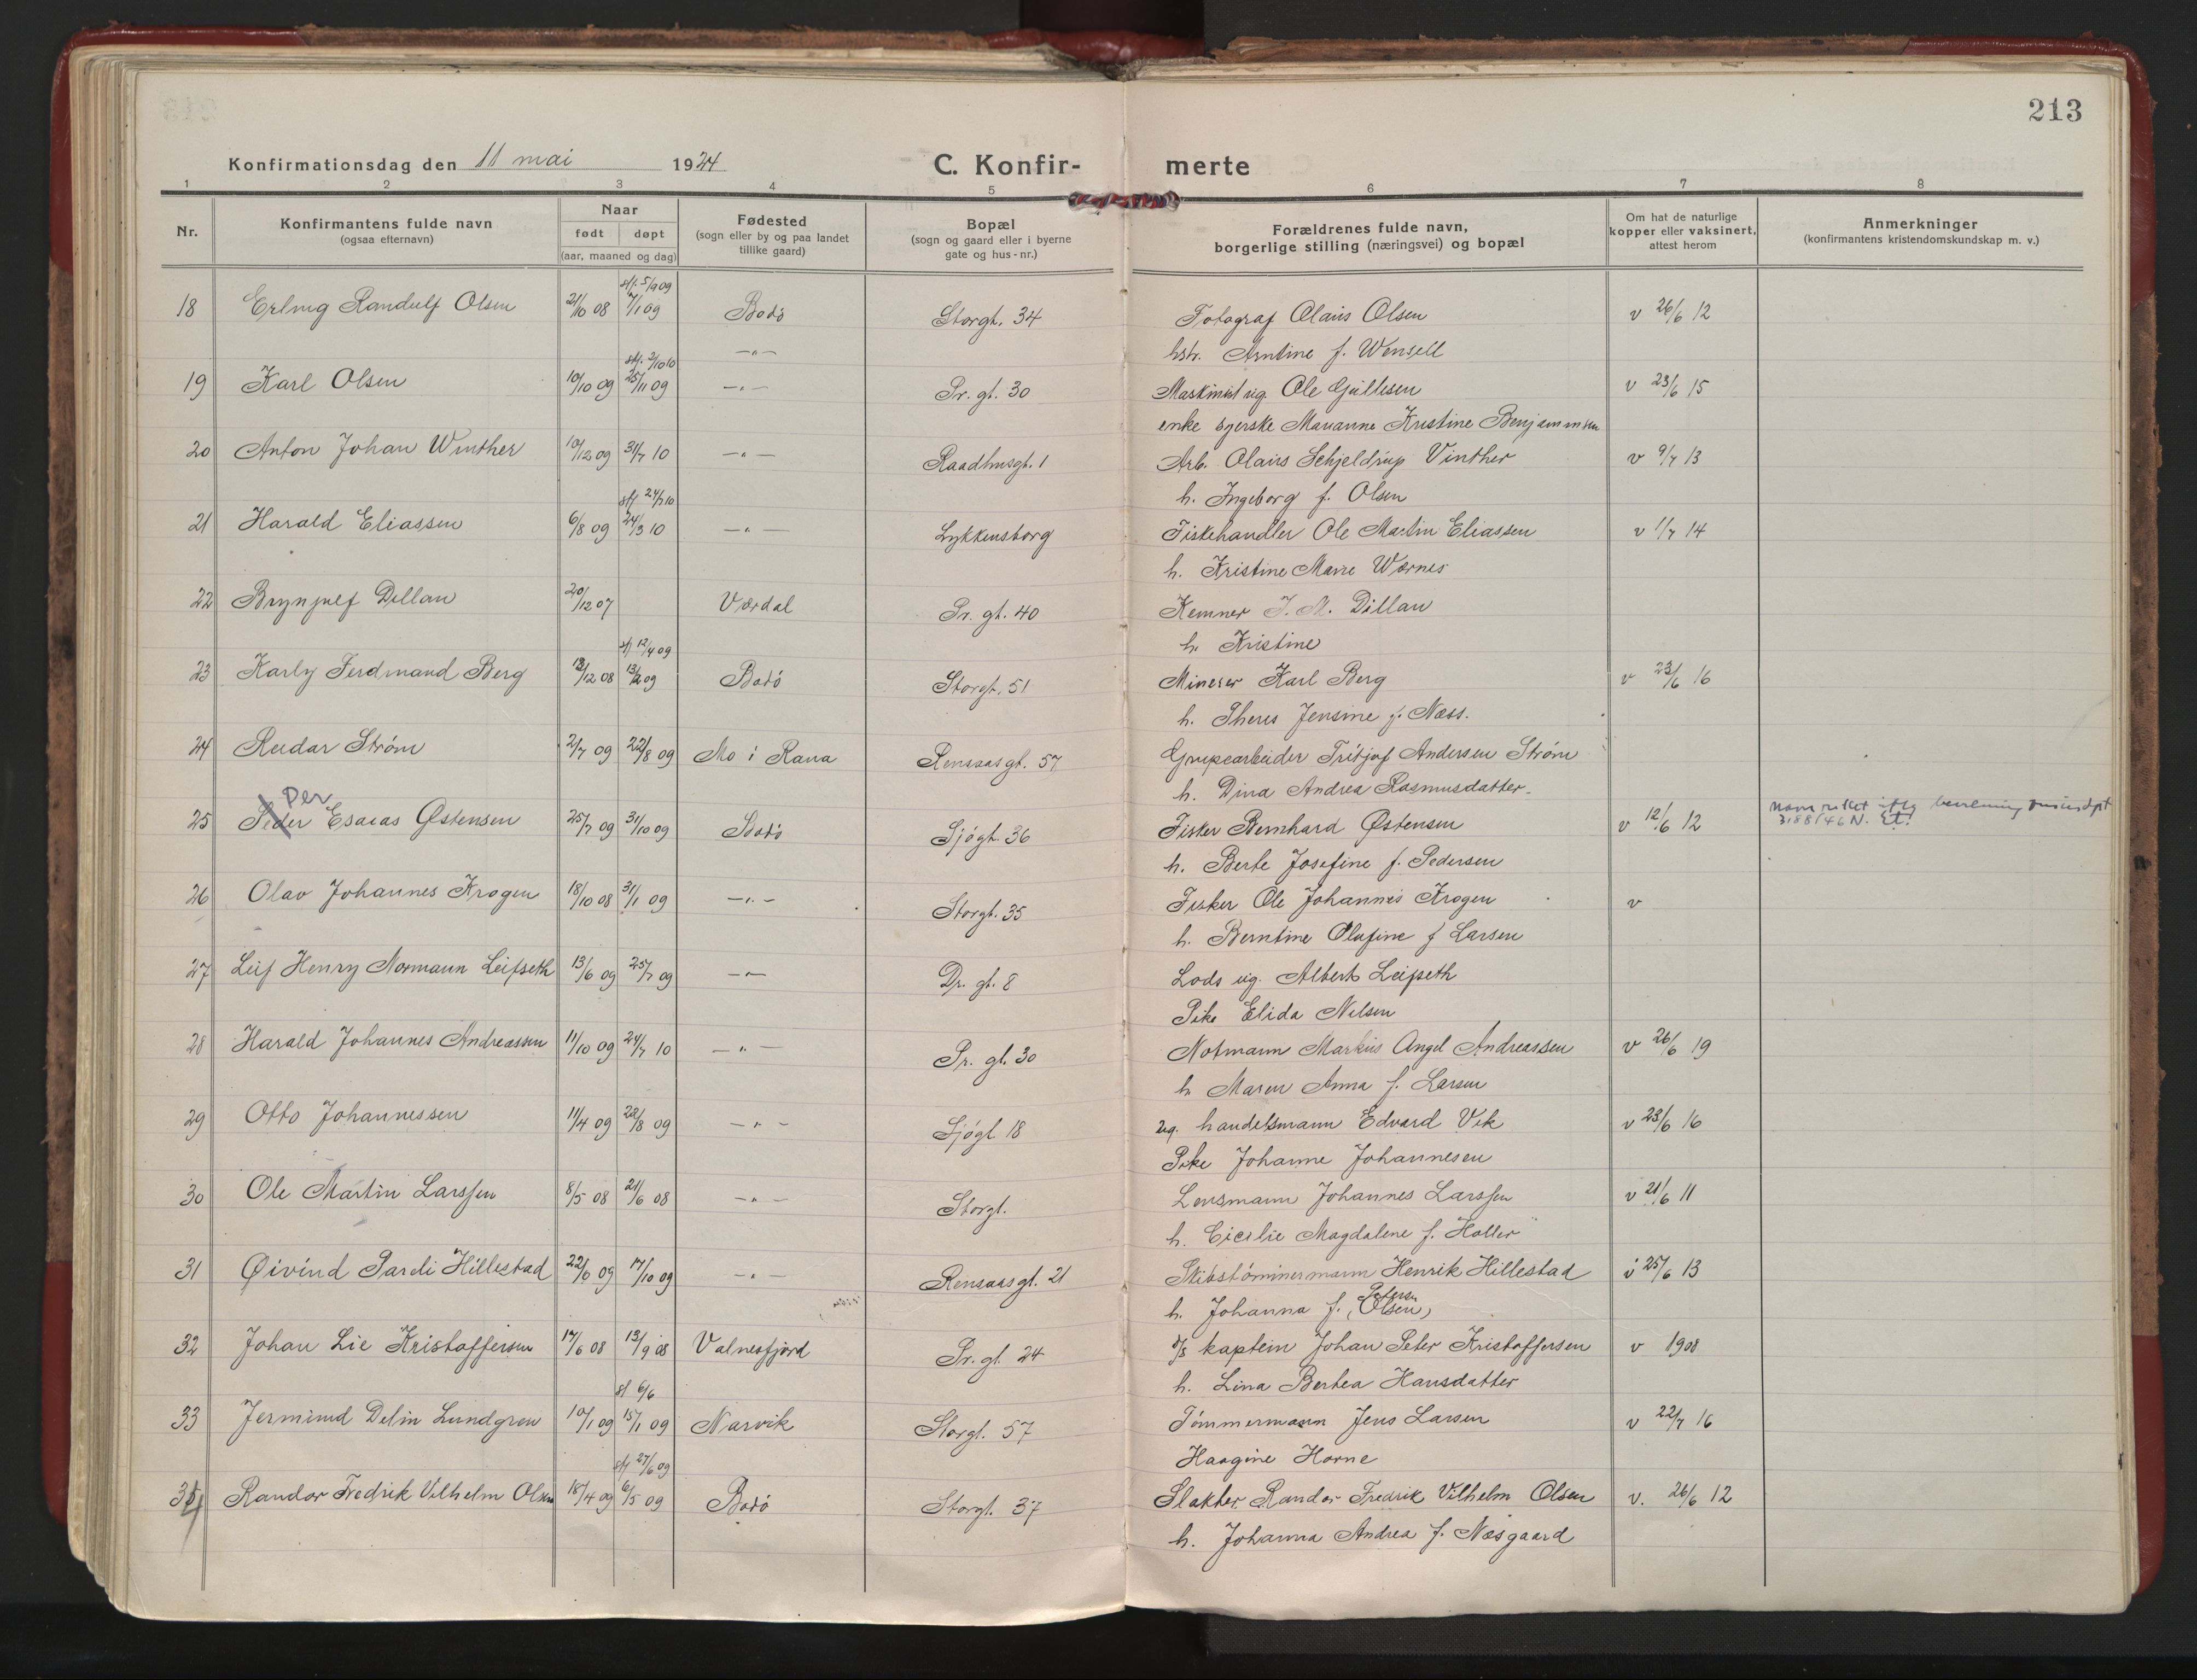 213
Konfirmationsdag den 11 mai 1924
C. Konfir- merte
1 2 3 4 5 6 7 8
Nr.
Konfirmantens fulde navn
(ogsaa efternavn)
Naar
født døpt
(aar, maaned og dag)
Fødested
(sogn eller by og paa landet
tillike gaard)
Bopæl
(sogn og gaard eller i byerne
gate og hus-nr.)
Forældrenes fulde navn,
borgerlige stilling (næringsvei) og bopæl
Om hat de naturlige
kopper eller vaksinert,
attest herom
Anmerkninger
(konfirmantens kristendomskundskap m. v.)
stf. 5/9 09
18 Erling Randulf Olsen 21/10 08 7/1 09 Bodø Storgt. 34 Fotograf Olaus Olsen v 26/6 12
—"— hstr. Arntine f. Wensell
stf. 2/10 10
19 Karl Olsen 10/10 09 25/11 09 —"— Pr. gt. 30 Maskinist ug. Ole Gjillesen v 23/6 15
enke syerske Marianne Kristine Benjaminsen
20 Anton Johan Winther 10/12 09 31/7 10 —"— Raadhusgt. 1 Arb. Olaus Schjeldrup Vinther v 9/7 13
h. Ingeborg f. Olsen
stf 24/7 10
21 Harald Eliassen 6/8 09 24/3 10 —"— Lykkensborg Fiskehandler Ole Martin Eliassen v 11/7 14
h. Kristine Marie Wærnes
22 Brynjulf Dillan 20/12 07 Værdal Pr. gt. 40 Kemner J. M. Dillan
h. Kristine
stf 12/4 09
23 Karly Ferdinand Berg 12/12 08 13/2 09 Bodø Storgt. 51 Minerer Karl Berg v 23/6 16
h. Theres Jensine f. Næss.
24 Reidar Strøm 2/7 09 22/8 09 Mo i Rana Rensaasgt. 57 Grupearbeider Fritjof Andersen Strøm
h. Dina Andrea Rasmusdatter.
Per
25 Peder Esaias Østensen 25/7 09 31/10 09 Bodø Sjøgt. 36 Fisker Bernhard Østensen v 12/6 12
3188/46 N.
h. Berte Josefine f. Pedersen
26 Olav Johannes Krogen 18/10 08 31/1 09 —"— Storgt. 35 Fisker Ole Johannes Krogen v
h. Berntine Olufine f Larsen
27 Leif Henry Normann Leifseth 13/6 09 25/7 09 —"— Dr. gt. 8 Lods ug. Albert Leifseth
Pike Elida Nilsen
28 Harald Johannes Andreassen 11/10 09 24/7 10 —"— Pr. gt. 30 Notmann Markus Angel Andreassen v 26/6 19
h. Maren Anna f. Larsen
29 Otto Johannessen 11/4 09 22/8 09 —"— Sjøgt 18 Ug. handelsmann Edvard Vik v 23/6 16
Pike Johanne Johannesen
30 Ole Martin Larssen 8/5 08 21/6 08 —"— Storgt. Lensmann Johannes Larssen v 21/6 11
h. Cicilie Magdalene f. Holler
31 Øivind Pareli Hillestad 09 17/10 09 —"— Rensaasgt. 21 Skibstømmermann Henrik Hillestad v 25/6 13
Petersen
h. Johanna f. (Olsen)
32 Johan Lie Kristoffersen 17/6 08 13/9 08 Valnesfjord Pr. gt. 24 d/s kaptein Johan Peter Kristoffersen v 1908
h. Lina Bertea Hansdatter
sf 6/6
33 Jermund Delin Lundgren 10/1 09 15/1 09 Narvik Storgt. 57 Tømmermann Jens Larsen v 22/7 16
Haagine Horne
stf 27/6 09
34 Randor Fredrik Vilhelm Olsen 18/4 09 6/5 09 Bodø Storgt. 37 Slakter Randor Fredrik Vilhelm Olsen v. 26/6 12
h. Johanna Andrea f. Næsgaard